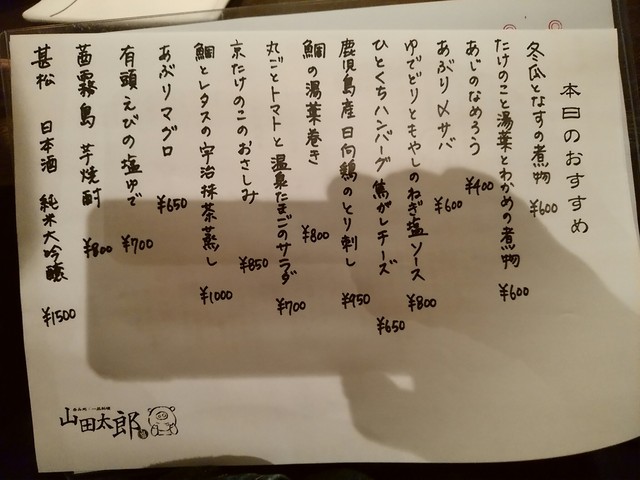 本日のおすすめ
冬瓜となすの煮物 ¥600
たけのこと湯葉とわかめの煮物 ¥600
あじのなめろう ¥400
あぶり〆サバ ¥600
ゆでどりともやしのねぎ塩ソース ¥800
ひとくちハンバーグ 焦がしチーズ ¥650
鹿児島産日向鶏のとり刺し ¥950
鯛の湯葉巻き ¥800
丸ごとトマトと温泉たまごのサラダ ¥700
京たけのこのおさしみ ¥850
鯛とレタスの宇治抹茶蒸し ¥1000
あぶりマグロ ¥650
有頭えびの塩ゆで ¥700
茜霧島 芋焼酎 ¥800
甚松 日本酒 純米大吟醸 ¥1500
山田太郎